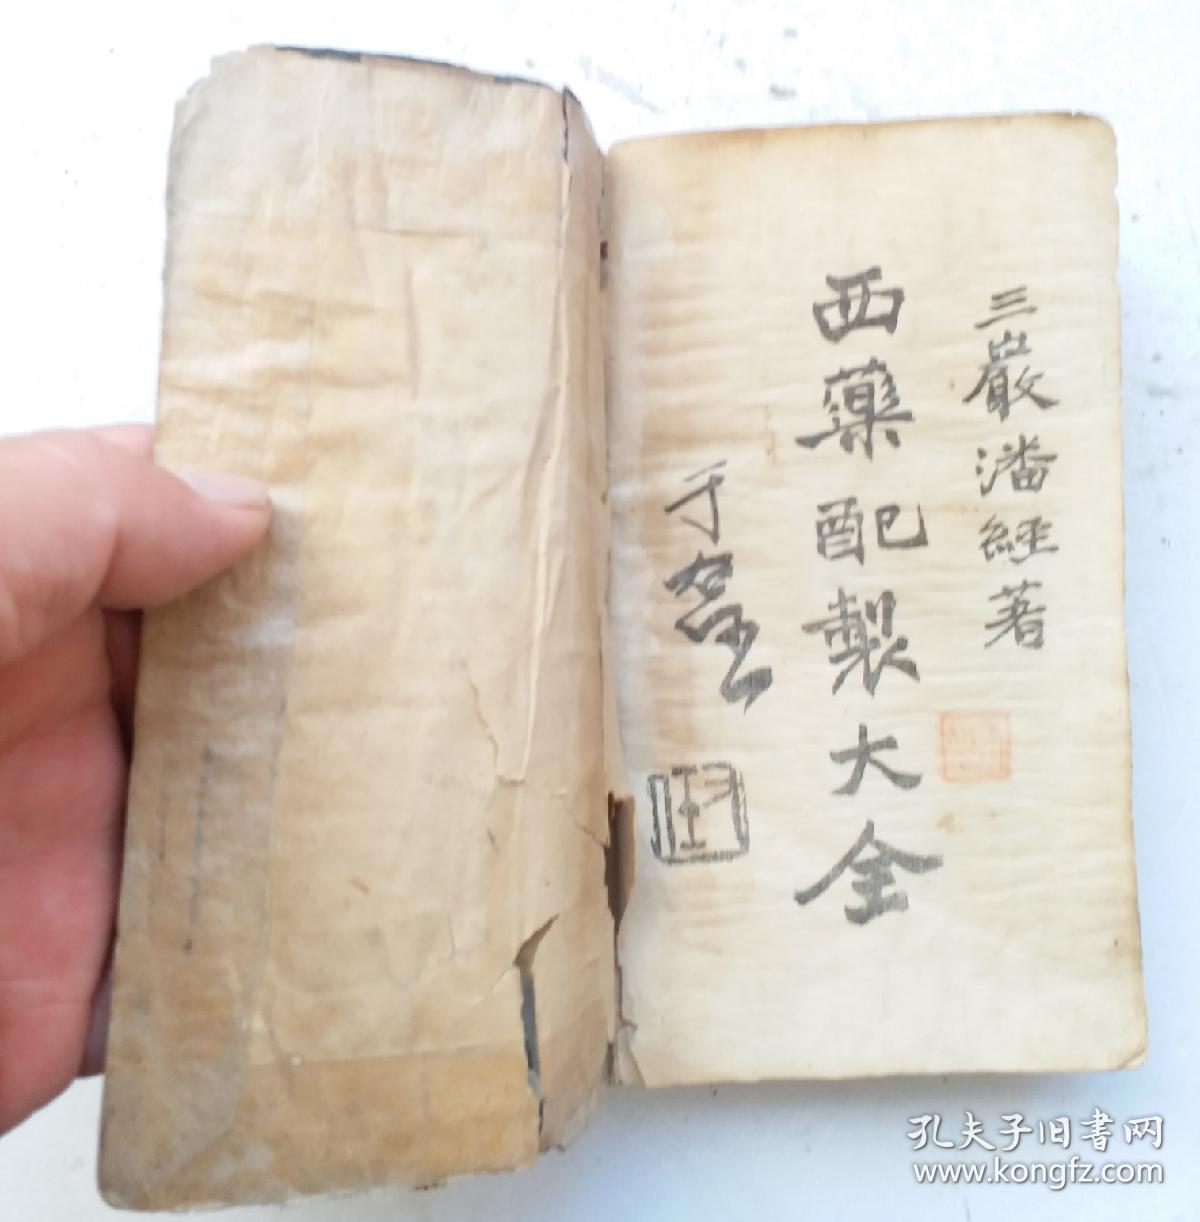 三巖潘經著
西藥配製大全
孔夫子旧書网
www.kongfz.com